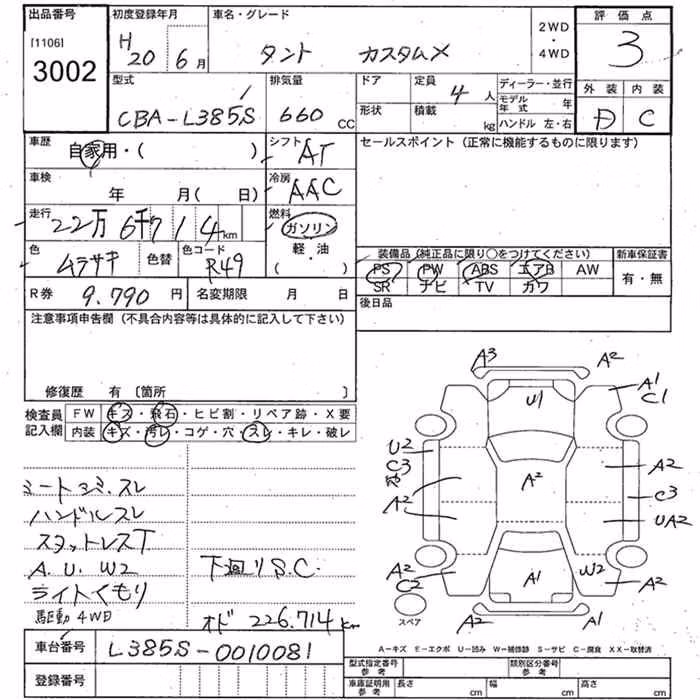 出品番号
[1106]
3002
初度登録年月
H20 6月
車名・グレード
タント カスタムX
2WD
・
4WD
評価点
3
外装 内装
D C
型式
CBA-L385S
排気量
660 CC
ドア
形状
定員
4人
積載
kg
ディーラー・並行
モデル年式 年
ハンドル 左・右
車歴
自家用・( )
シフト
AT
セールスポイント (正常に機能するものに限ります)
車検
年 月( 日)
冷房
AAC
走行
22万6千714km
燃料
ガソリン
軽・油
( ・ )
色
ムラサキ
色替
色コード
R49
装備品(純正品に限り○をつけてください)
新車保証書
PS PW ABS エアB AW
SR ナビ TV カワ
有・無
R券
9.790円
名変期限 月 日
後日品
注意事項申告欄(不具合内容等は具体的に記入して下さい)
修復歴 有〔箇所 〕
検査員
記入欄
FW キズ・飛石・ヒビ割・リペア跡・X要
内装 キズ・汚レ・コゲ・穴・スレ・キレ・破レ
シートシミ、スレ
ハンドルスレ
スタットレスT
A.U.W2
ライトくもり
駆動4WD
下廻りS.C.
オド 226.714km
A3
A2
A1
C1
U1
U2
C3
A2
A2
A2
C3
UA2
A2
C2
A1
W2
A2
スペア
A2
A1
A-キズ E-エクボ U-凹み W-補修跡 S-サビ C-腐食 XX-取替済
車台番号
L385S-0010081
登録番号
型式指定番号
参考
類別区分番号
参考
車庫証明用
参考
長さ cm
幅 cm
高さ cm